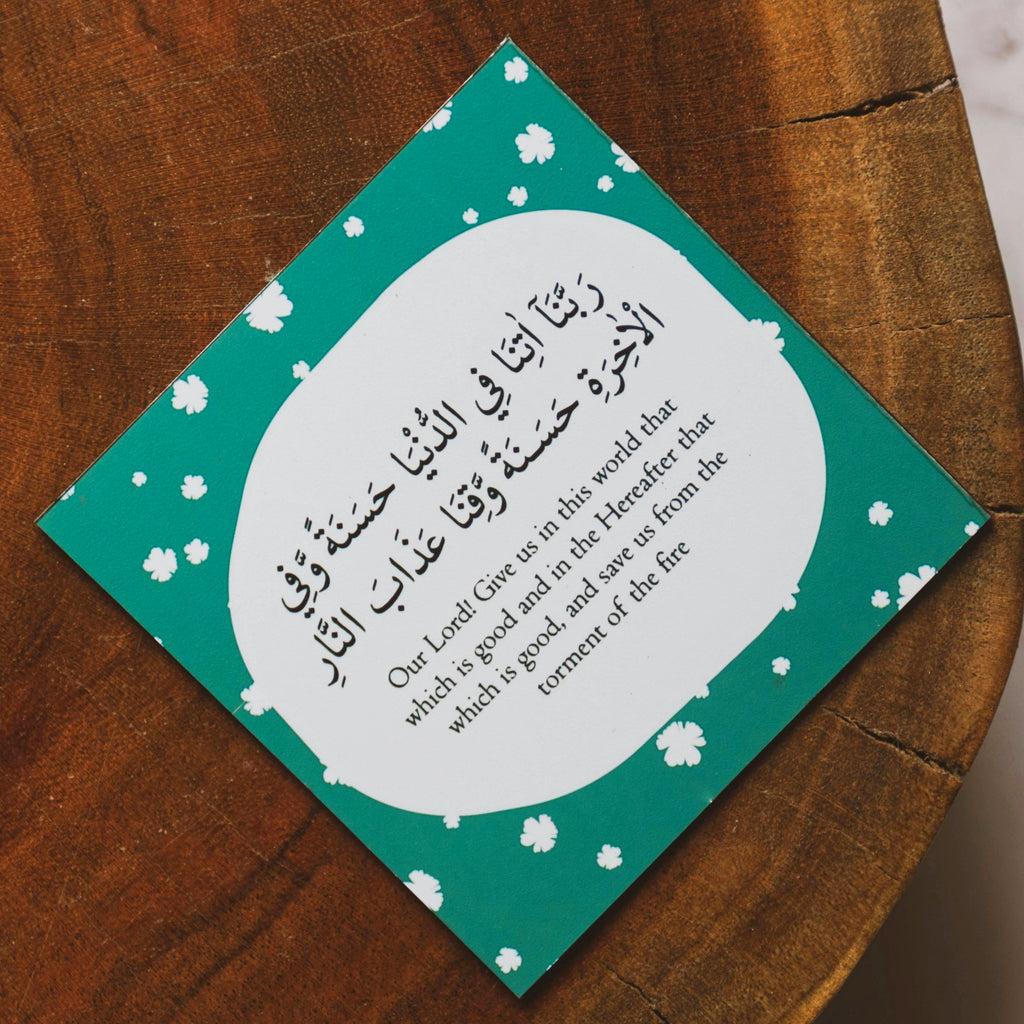 رَبَّنَآ اٰتِنَا فِي الدُّنْيَا حَسَنَةً وَّفِي
الْاٰخِرَةِ حَسَنَةً وَّقِنَا عَذَابَ النَّارِ
Our Lord! Give us in this world that
which is good and in the Hereafter that
which is good, and save us from the
torment of the fire